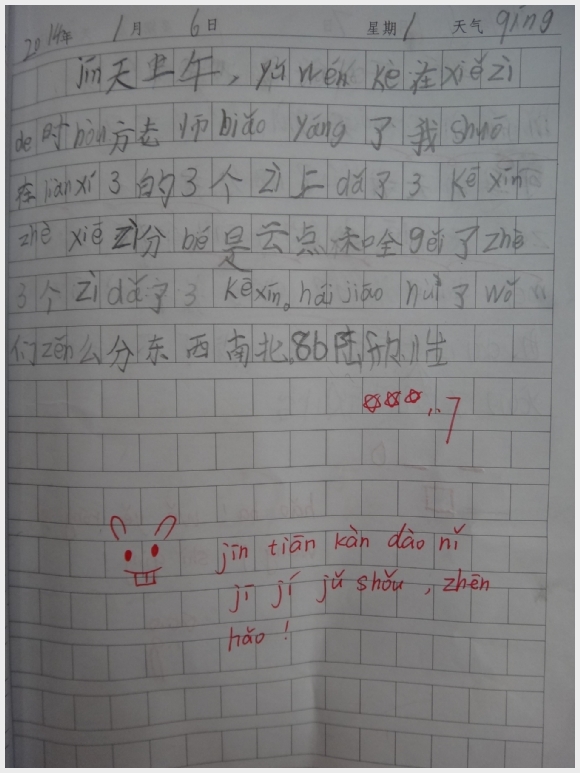 2014年 1月 6日 星期1 天气 qíng
jīn天上午，yǔ wén kè在xiě zì
de时hòu方老师biǎo yáng了我shuō
在liàn xí 3的3个zì上dǎ了3 Kē xīn
zhè xiē zì分bé是云点禾口全gěi了zhè
3个zì dǎ了3 Kē xīn。hái jiāo huì了wǒ
们zěn么分东西南北.8b陆
.7
jīn tiān kàn dào nǐ
jī jí jǔ shǒu，zhēn
hǎo！